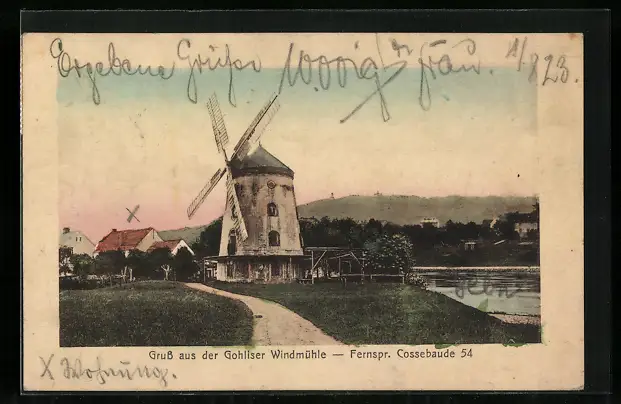 Ergebene Grüße Woznig u. Frau. 1/8 23.
Gruß aus der Gohliser Windmühle — Fernspr. Cossebaude 54
X Wohnung.